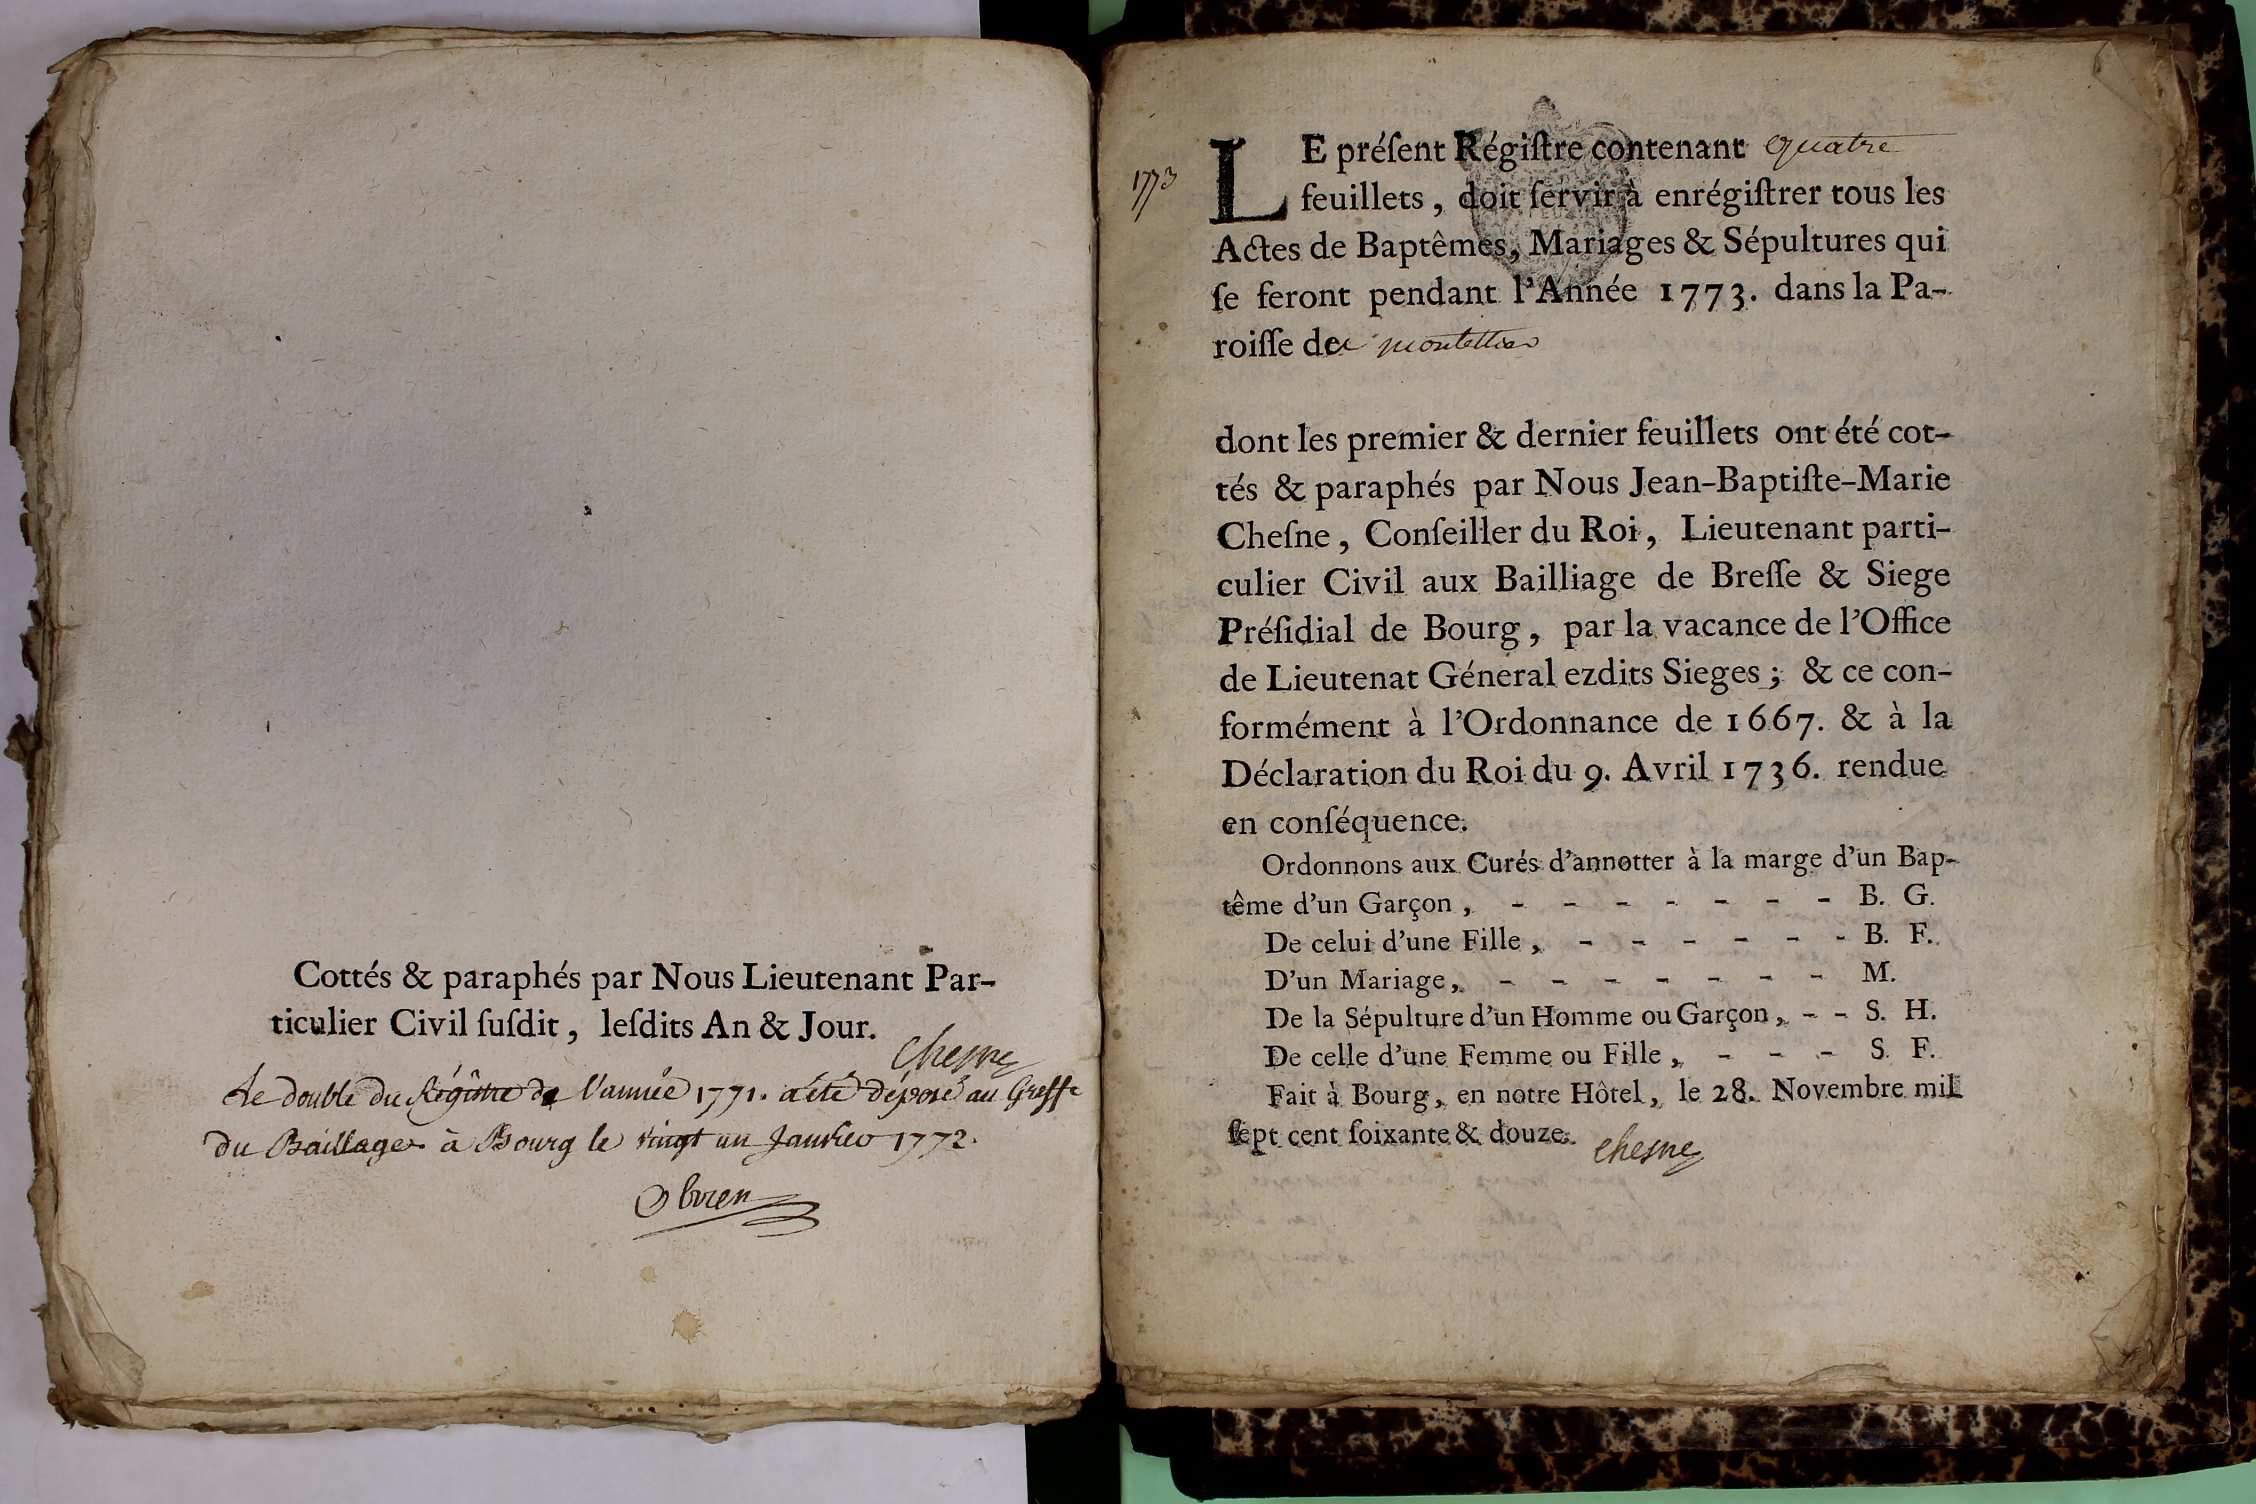 Cottés & paraphés par Nous Lieutenant Par-
ticulier Civil ſuſdit, leſdits An & Jour.
Chesne
Le double du Régistre de l'année 1771. a été déposé au Greffe
du Baillage à Bourg le vingt un Janvier 1772.
1773
LE préſent Régiſtre contenant quatre
feuillets, doit ſervir à enrégiſtrer tous les
Actes de Baptêmes, Mariages & Sépultures qui
ſe feront pendant l'Année 1773. dans la Pa-
roiſſe de montellier
dont les premier & dernier feuillets ont été cot-
tés & paraphés par Nous Jean-Baptiſte-Marie
Cheſne, Conſeiller du Roi, Lieutenant parti-
culier Civil aux Bailliage de Breſſe & Siege
Préſidial de Bourg, par la vacance de l'Office
de Lieutenat Géneral ezdits Sieges; & ce con-
formément à l'Ordonnance de 1667. & à la
Déclaration du Roi du 9. Avril 1736. rendue
en conſéquence.
Ordonnons aux Curés d'annotter à la marge d'un Bap-
tême d'un Garçon, - - - - - - - B. G.
De celui d'une Fille, - - - - - - B. F.
D'un Mariage, - - - - - - - M.
De la Sépulture d'un Homme ou Garçon, - - S. H.
De celle d'une Femme ou Fille, - - - S. F.
Fait à Bourg, en notre Hôtel, le 28. Novembre mil
ſept cent ſoixante & douze.
Chesne